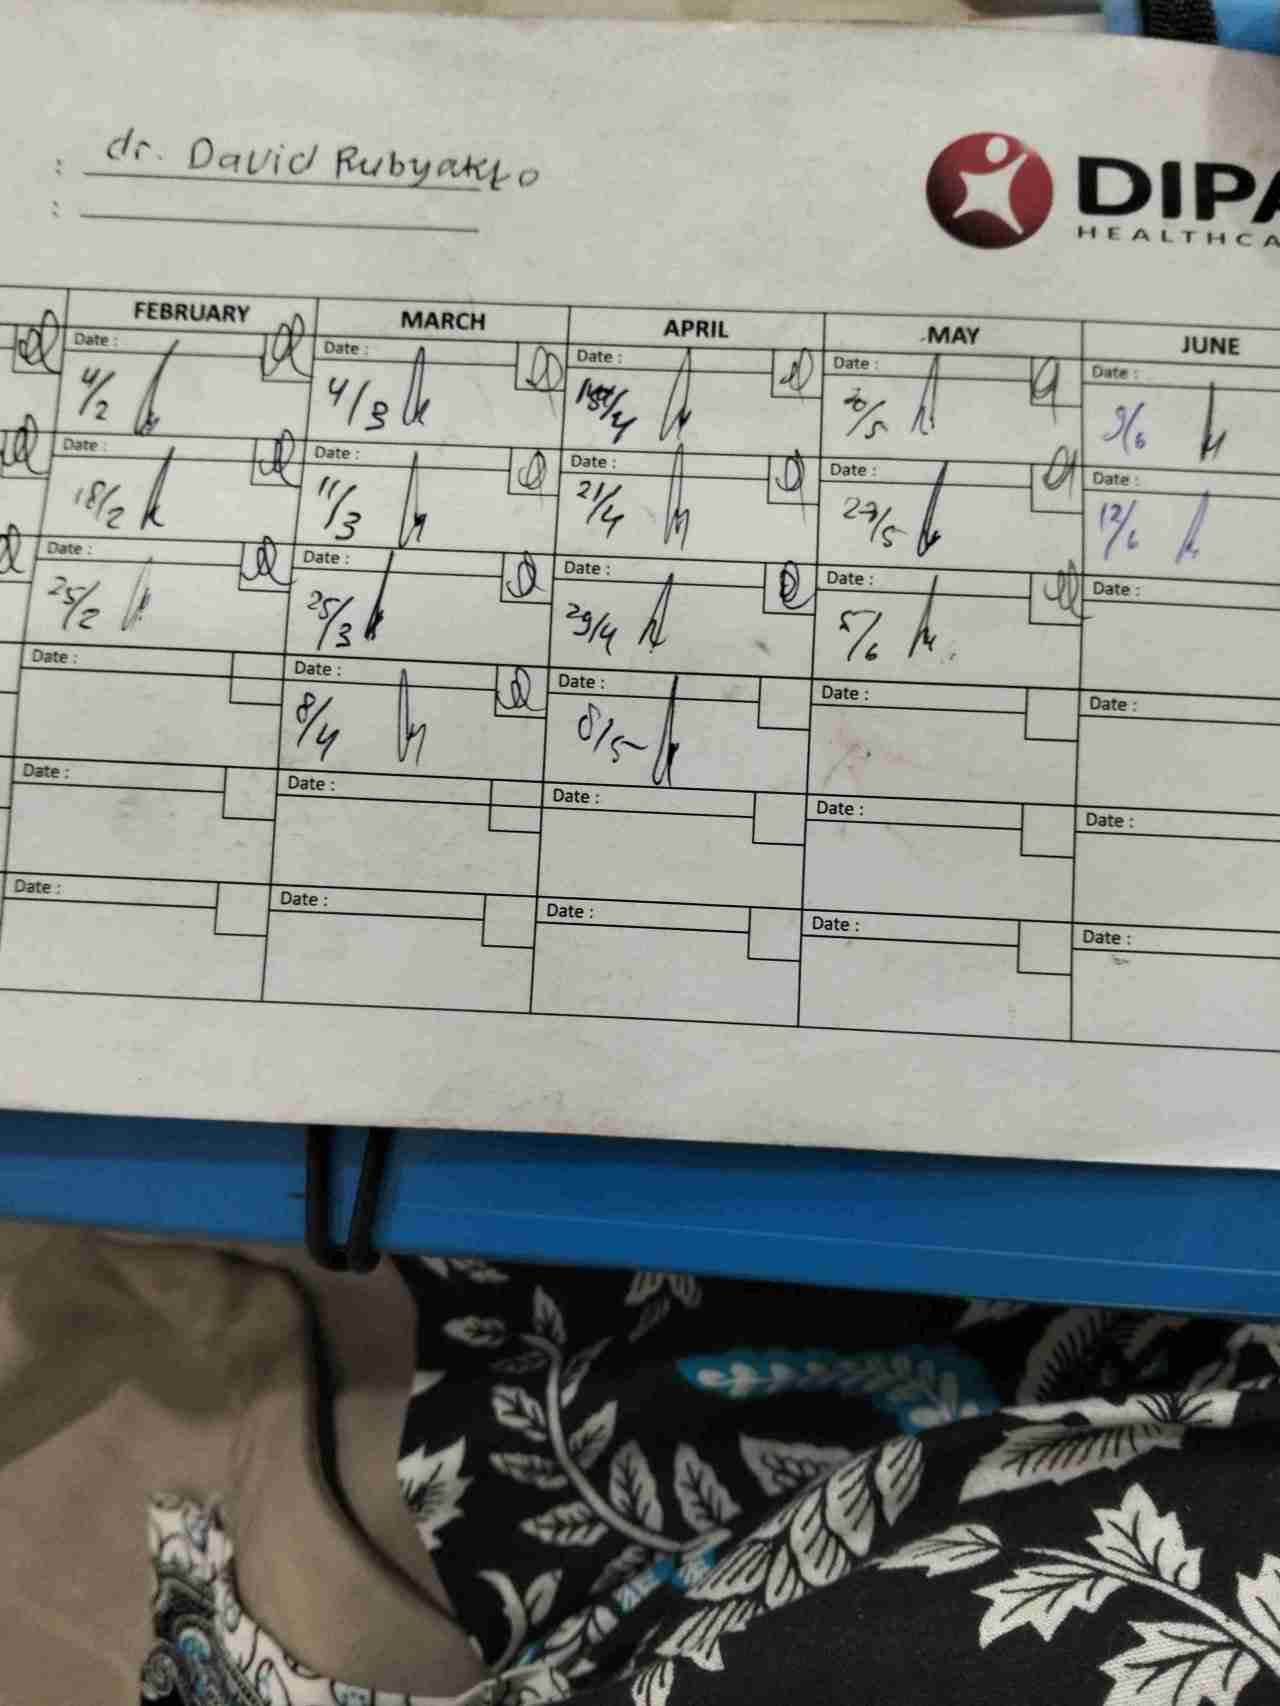 : dr. David Rubyakto
:
DIPA
HEALTHCA
FEBRUARY MARCH APRIL MAY JUNE
Date : Date : Date : Date : Date :
4/2 4/3 20/5 9/6
Date : Date : Date : Date : Date :
18/2 11/3 21/4 27/5 12/6
Date : Date : Date : Date : Date :
25/2 25/3 29/4 5/6
Date : Date : Date : Date : Date :
8/4 8/5
Date : Date : Date : Date : Date :
Date : Date : Date : Date : Date :